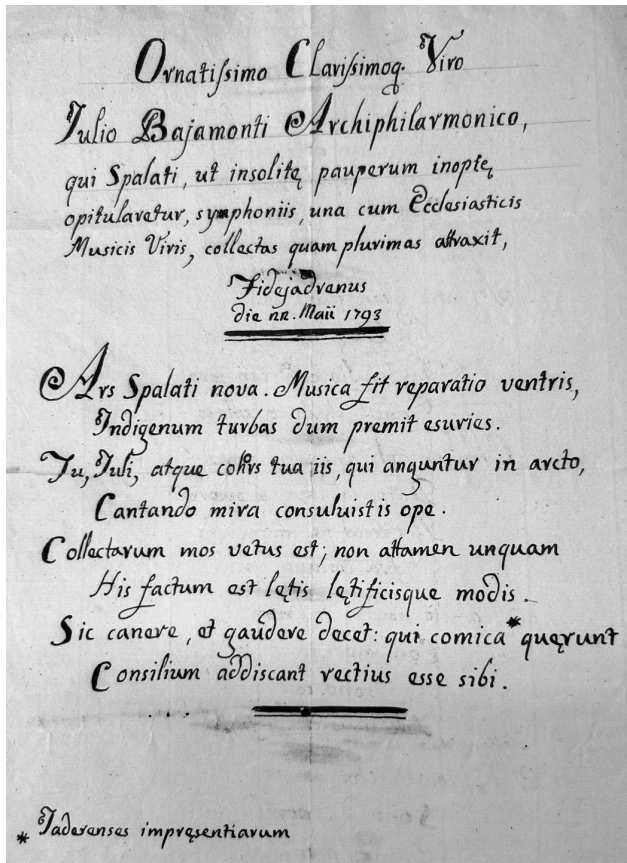 Ornatiſsimo Clariſsimoq. Viro
Julio Bajamonti Archiphilarmonico,
qui Spalati, ut insolitę pauperum inopię
opitularetur, symphoniis, una cum Ecclesiasticis
Musicis Viris, collectas quam plurimas attraxit,
Fidejadrenus
die nn. Maii 1793
Ars Spalati nova. Musica fit reparatio ventris,
Indigenum turbas dum premit esuries.
Tu, Juli, atque cohrs tua iis, qui anguntur in arcto,
Cantando mira consuluistis ope.
Collectarum mos vetus est; non attamen unquam
His factum est lętis lętificisque modis.
Sic canere, et gaudere decet: qui comica * quęrunt
Consilium addiscant rectius esse sibi.
* Jaderenses impręsentiarum